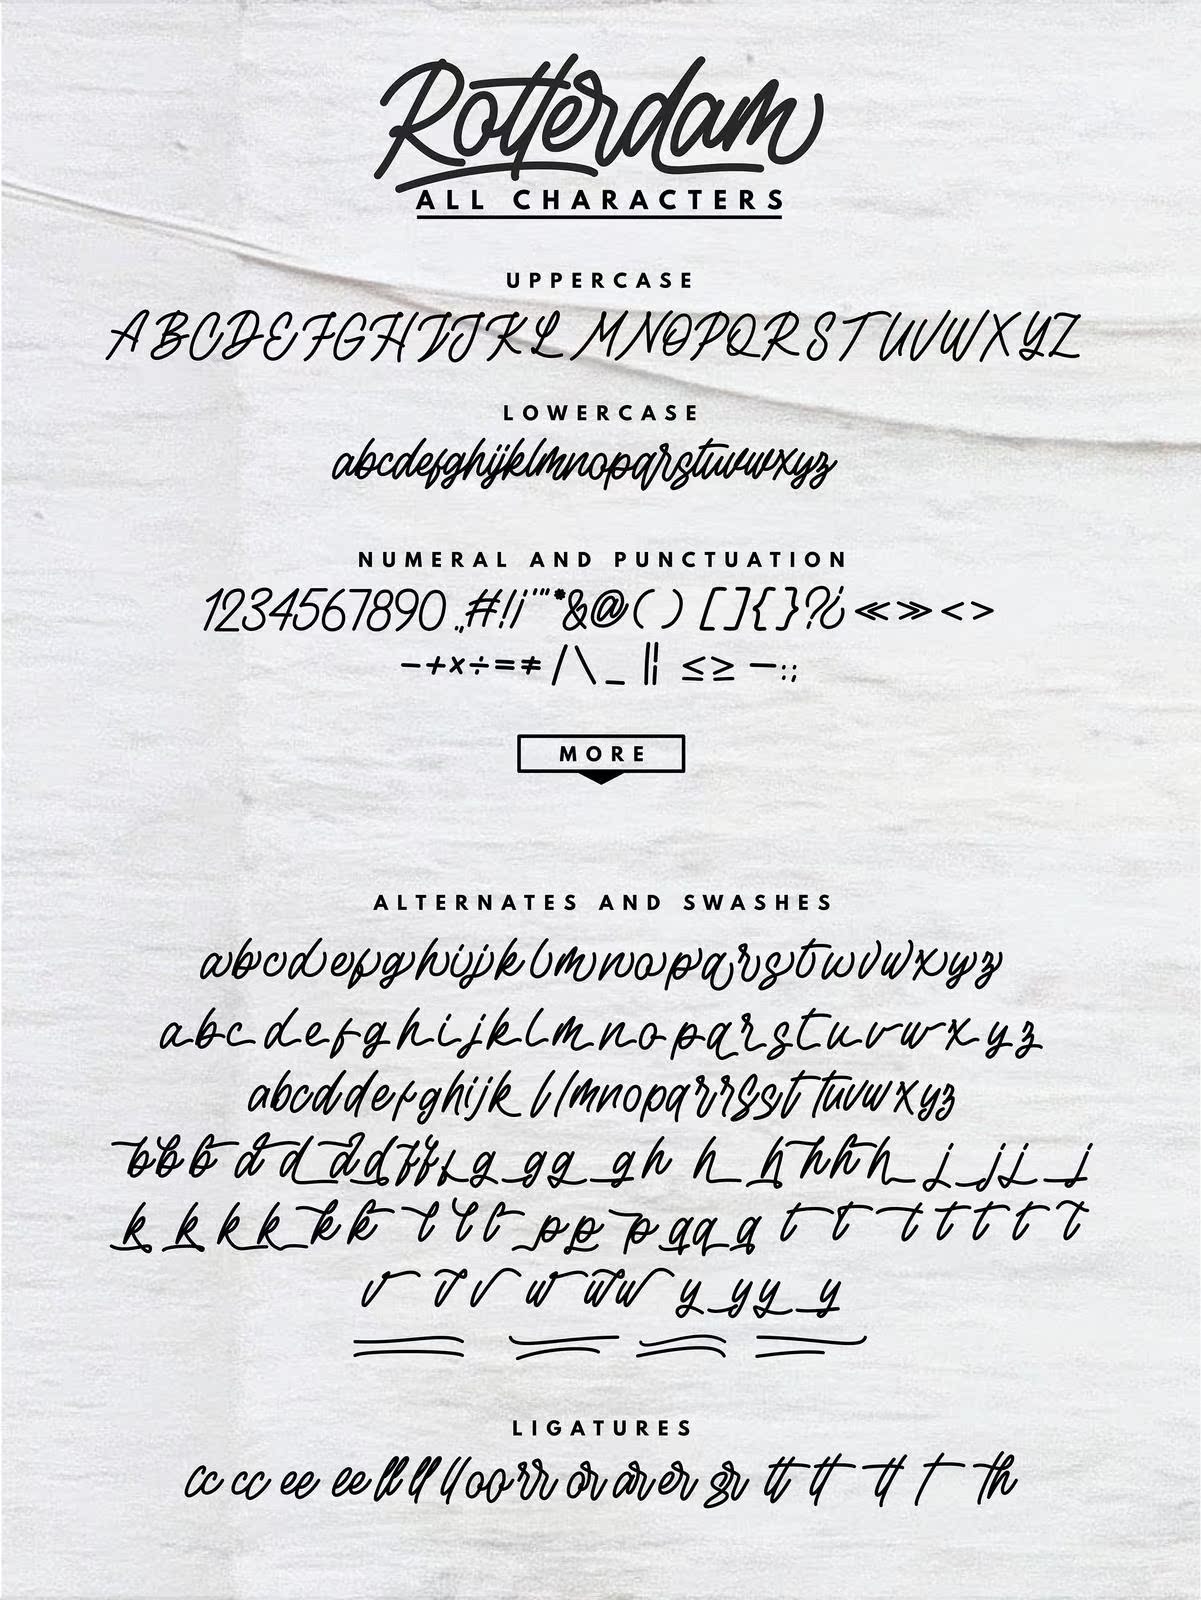 Rotterdam
ALL CHARACTERS
UPPERCASE
ABCDEFGHIJKLMNOPQRSTUVWXYZ
LOWERCASE
abcdefghijklmnopqrstuvwxyz
NUMERAL AND PUNCTUATION
1234567890.,#!¡'"*&@()[]{}?¿≪≫<>
−+×÷=≠/\_|¦≤≥—:;
MORE
ALTERNATES AND SWASHES
abcdefghijklmnopqrstuvwxyz
abcdefghijklmnopqrstuvwxyz
abcddefghijkllmnopqrrrssstttuvwxyz
bbbddddfffgggghhhhhhjjjj
kkkkkklllpppqqqttttttt
vvvwwwyyyy
LIGATURES
cc cc ee ee ll ll ll oo rr or ar er sr tt tt tt t th